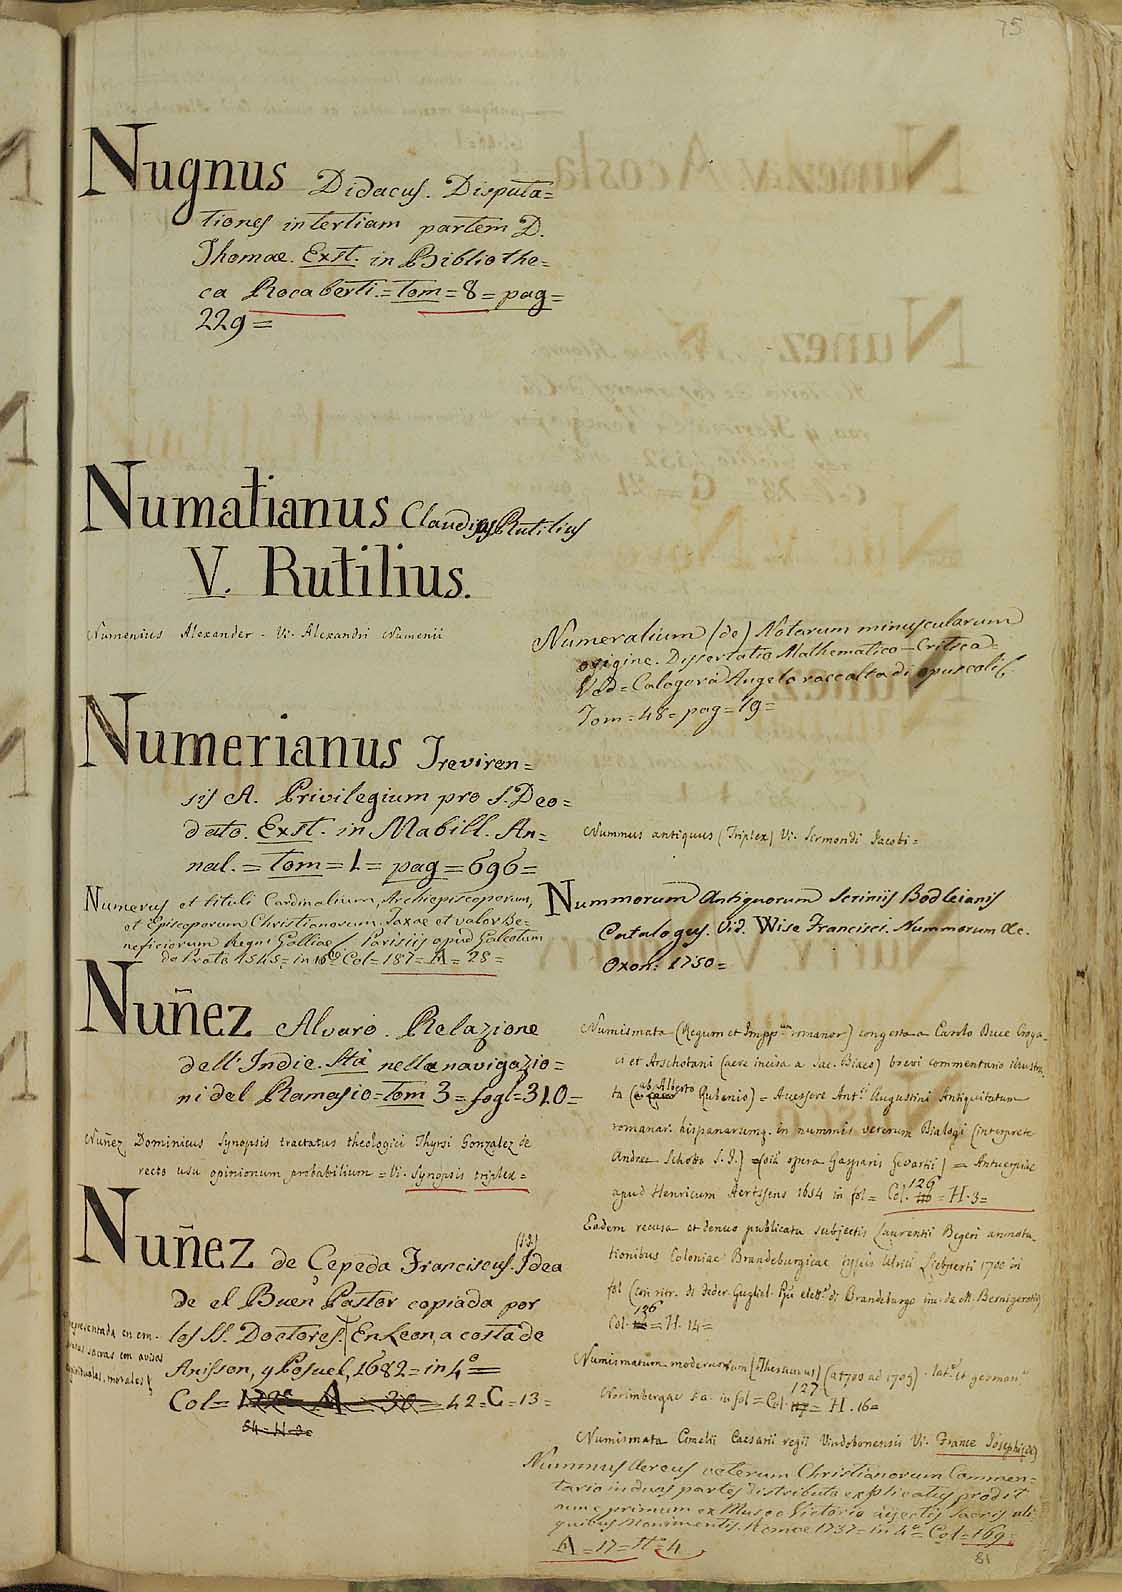 75
Nugnus Didacus. Disputa=
tiones in tertiam partem D.
Thomae. Exst. in Bibliothe=
ca Rocaberti.=tom=8=pag=
229=
Numatianus Claudius Rutilius
V. Rutilius.
Numenius Alexander. Vi. Alexandri Numenii
Numerianus Treviren=
sis A. Privilegium pro S. Deo=
dato. Exst. in Mabill. An=
nal.=tom=1=pag=696=
Numerus et tituli Cardinalium, Archiepiscoporum,
et Episcoporum Christianorum. Taxae et valor Be=
neficiorum Regni Galliae / Parisiis apud Galeotum
da Prato 1545=in 16º Col=187=A=28=
Nuñez Alvaro. Relazione
dell'Indie. Stà nella navigazio=
ni del Ramusio=tom 3=fogl=310=
Nuñez Dominicus Synopsis tractatus theologici Thyrsi Gonzalez de
recto usu opinionum probabilium=Vi. Synopsis triplex=
Nuñez de Çepeda Franciscus. Idea
de el Buen Pastor copiada por
los SS. Doctores. En Leon, a costa de
representada en em-
sacras con avisos
espirituales, morales
Anisson, y Posuel, 1682=in 4º=
Col= A = 30=42=C=13=
Numeralium (de) Notarum minuscularum
origine. Dissertatio Mathematico-Critica=
Vid=Calogerà Angelo raccolta di opuscoli
Tom=48=pag=19=
Nummus antiquus (Triplex) Vi. Sermondi Jacobi=
Nummorum Antiquorum Scriniis Bodleianis
Catalogus. Vid. Wise Francisci. Nummorum &c.
Oxon: 1750=
Numismata (Regum et Impp. romanor) congesta a Carolo Duce Croya=
ci et Arschotani (aere incisa a Jac. Biaeo) brevi commentario illustra
ta (ab Alberto Rubenio)=Accessere Ant. Augustini Antiquitatum
romanar. hispanarumq. in nummis veterum Dialogi (interprete
Andrea Schotto S.J.) opera Gasparis Gevartii)=Antuerpiae
apud Henricum Aertssens 1654 in fol=Col. 126=H.3=
Eadem recusa et denuo publicata subjectis Laurentii Begeri annota
tionibus Coloniae Brandeburgicae typis Ulrici Liebperti 1700 in
fol (con ritr. di Feder. Gugliel. elett. di Brandeburgo inc. da M. Bernigeroth)
Col. 126=H.14=
Numismatum modernorum (Thesaurus) (a 1700 ad 1709). lat. et german.
Norimbergae s.a. in fol=Col. 127=H.16=
Numismata Cimelii Caesarii regii Vindobonensis Vi. France Josephi (de)
Nummus Aereus veterum Christianorum Commen=
tario in duas partes distributo explicatus prodit
nunc primum ex Museo Victorio adjectis sacris ali
quibus Monimentis. Romae 1737=in 4º=Col=169=
A=17=H=4
81